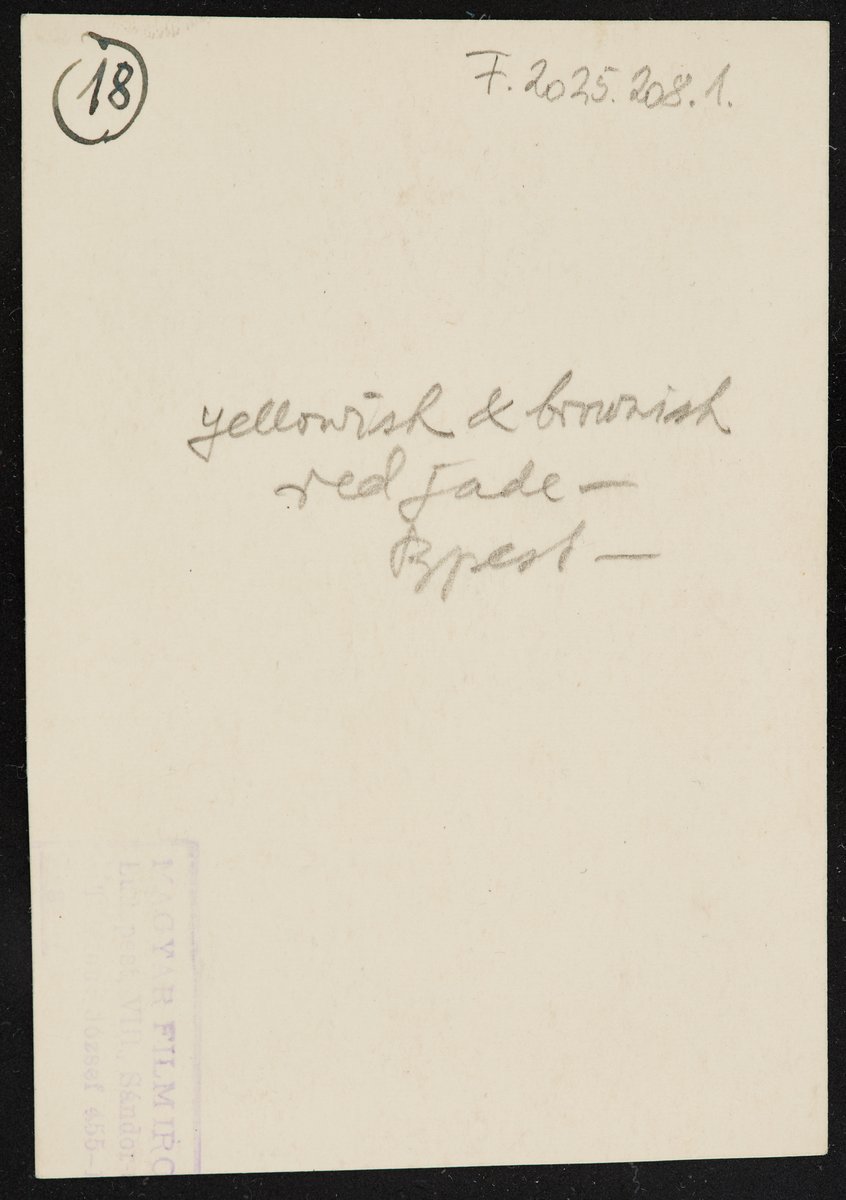 18
F. 2025.208.1.
yellowish & brownish
red jade —
Bpest —
MAGYAR FILMIRO
Budapest, VIII., Sándor
József 455-